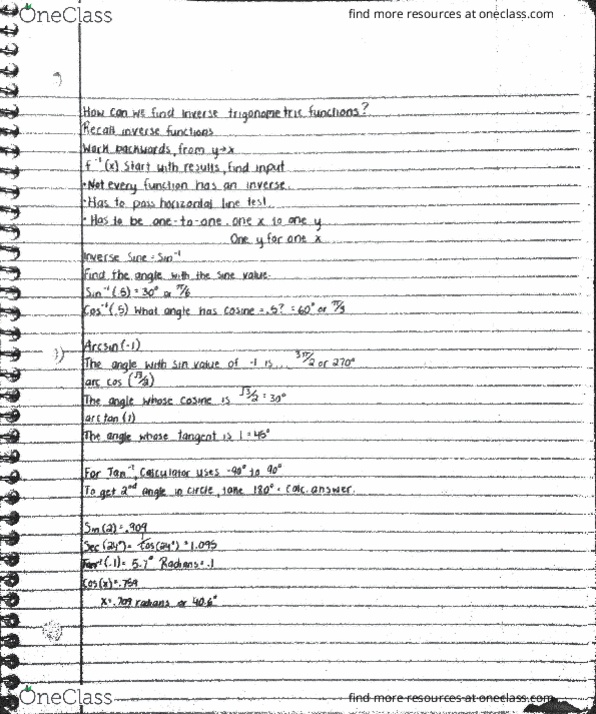 OneClass
find more resources at oneclass.com
How can we find inverse trigonometric functions?
Recall inverse functions
Work backwards, from y→x
f⁻¹(x) Start with results, find input
•Not every function has an inverse.
•Has to pass horizontal line test
•Has to be one-to-one. one x to one y
One y for one x
Inverse Sine = Sin⁻¹
Find the angle with the sine value.
Sin⁻¹(.5) = 30° or π/6
Cos⁻¹(.5) What angle has cosine = .5? = 60° or π/3
Arcsin(-1)
The angle with sin value of -1 is... 3π/2 or 270°
arc cos (√3/2)
The angle whose cosine is √3/2 = 30°
arctan(1)
The angle whose tangent is 1 = 45°
For Tan⁻¹, Calculator uses -90° to 90°
To get 2nd angle in circle, take 180° + calc. answer.
Sin(2) = .909
Sec(24°) = 1/cos(24°) = 1.095
Tan⁻¹(.1) = 5.7° Radians = .1
Cos(x) = .759
x = .709 radians or 40.6°
OneClass
find more resources at oneclass.com